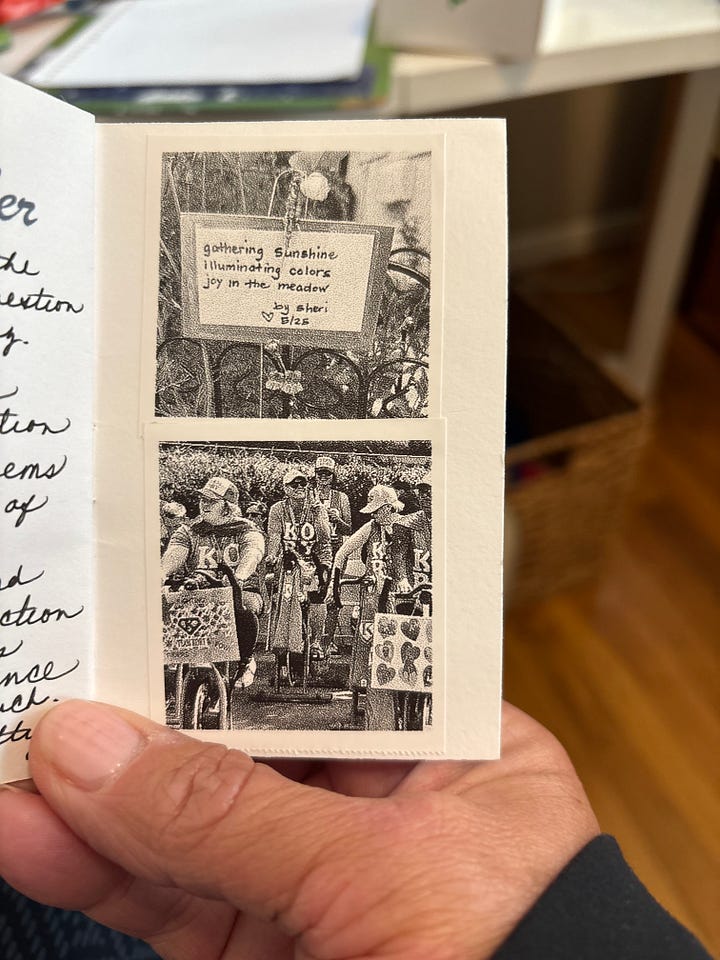 er
the
estion
y.
tion
ems
of
ction
nce
uch.
gathering Sunshine
illuminating colors
joy in the meadow
by Sheri
♡ 5/25
KO
RY
KO
RY
K
R
K
R